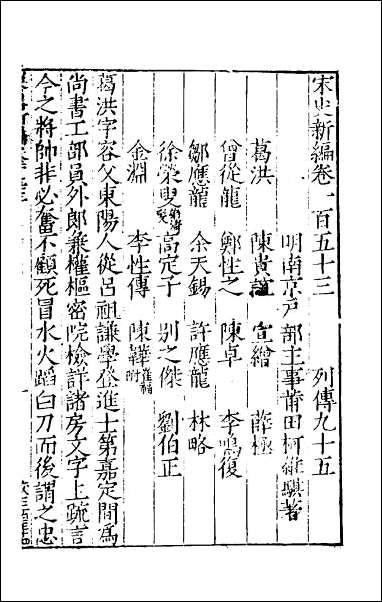 宋史新編卷一百五十三　列傳九十五
明南京戸部主事莆田柯維騏著
葛洪　陳貴誼　宣繒　薛極
曾從龍　鄭性之　陳卓　李鳴復
鄒應龍　余天錫　許應龍　林略
徐榮叟　高定子　別之傑　劉伯正
金淵　李性傳　陳韡
葛洪字容父東陽人從呂祖謙學登進士第嘉定間爲
尚書工部員外郎兼權樞密院檢詳諸房文字上疏言
今之將帥非必奮不顧死冒水火蹈白刃而後謂之忠